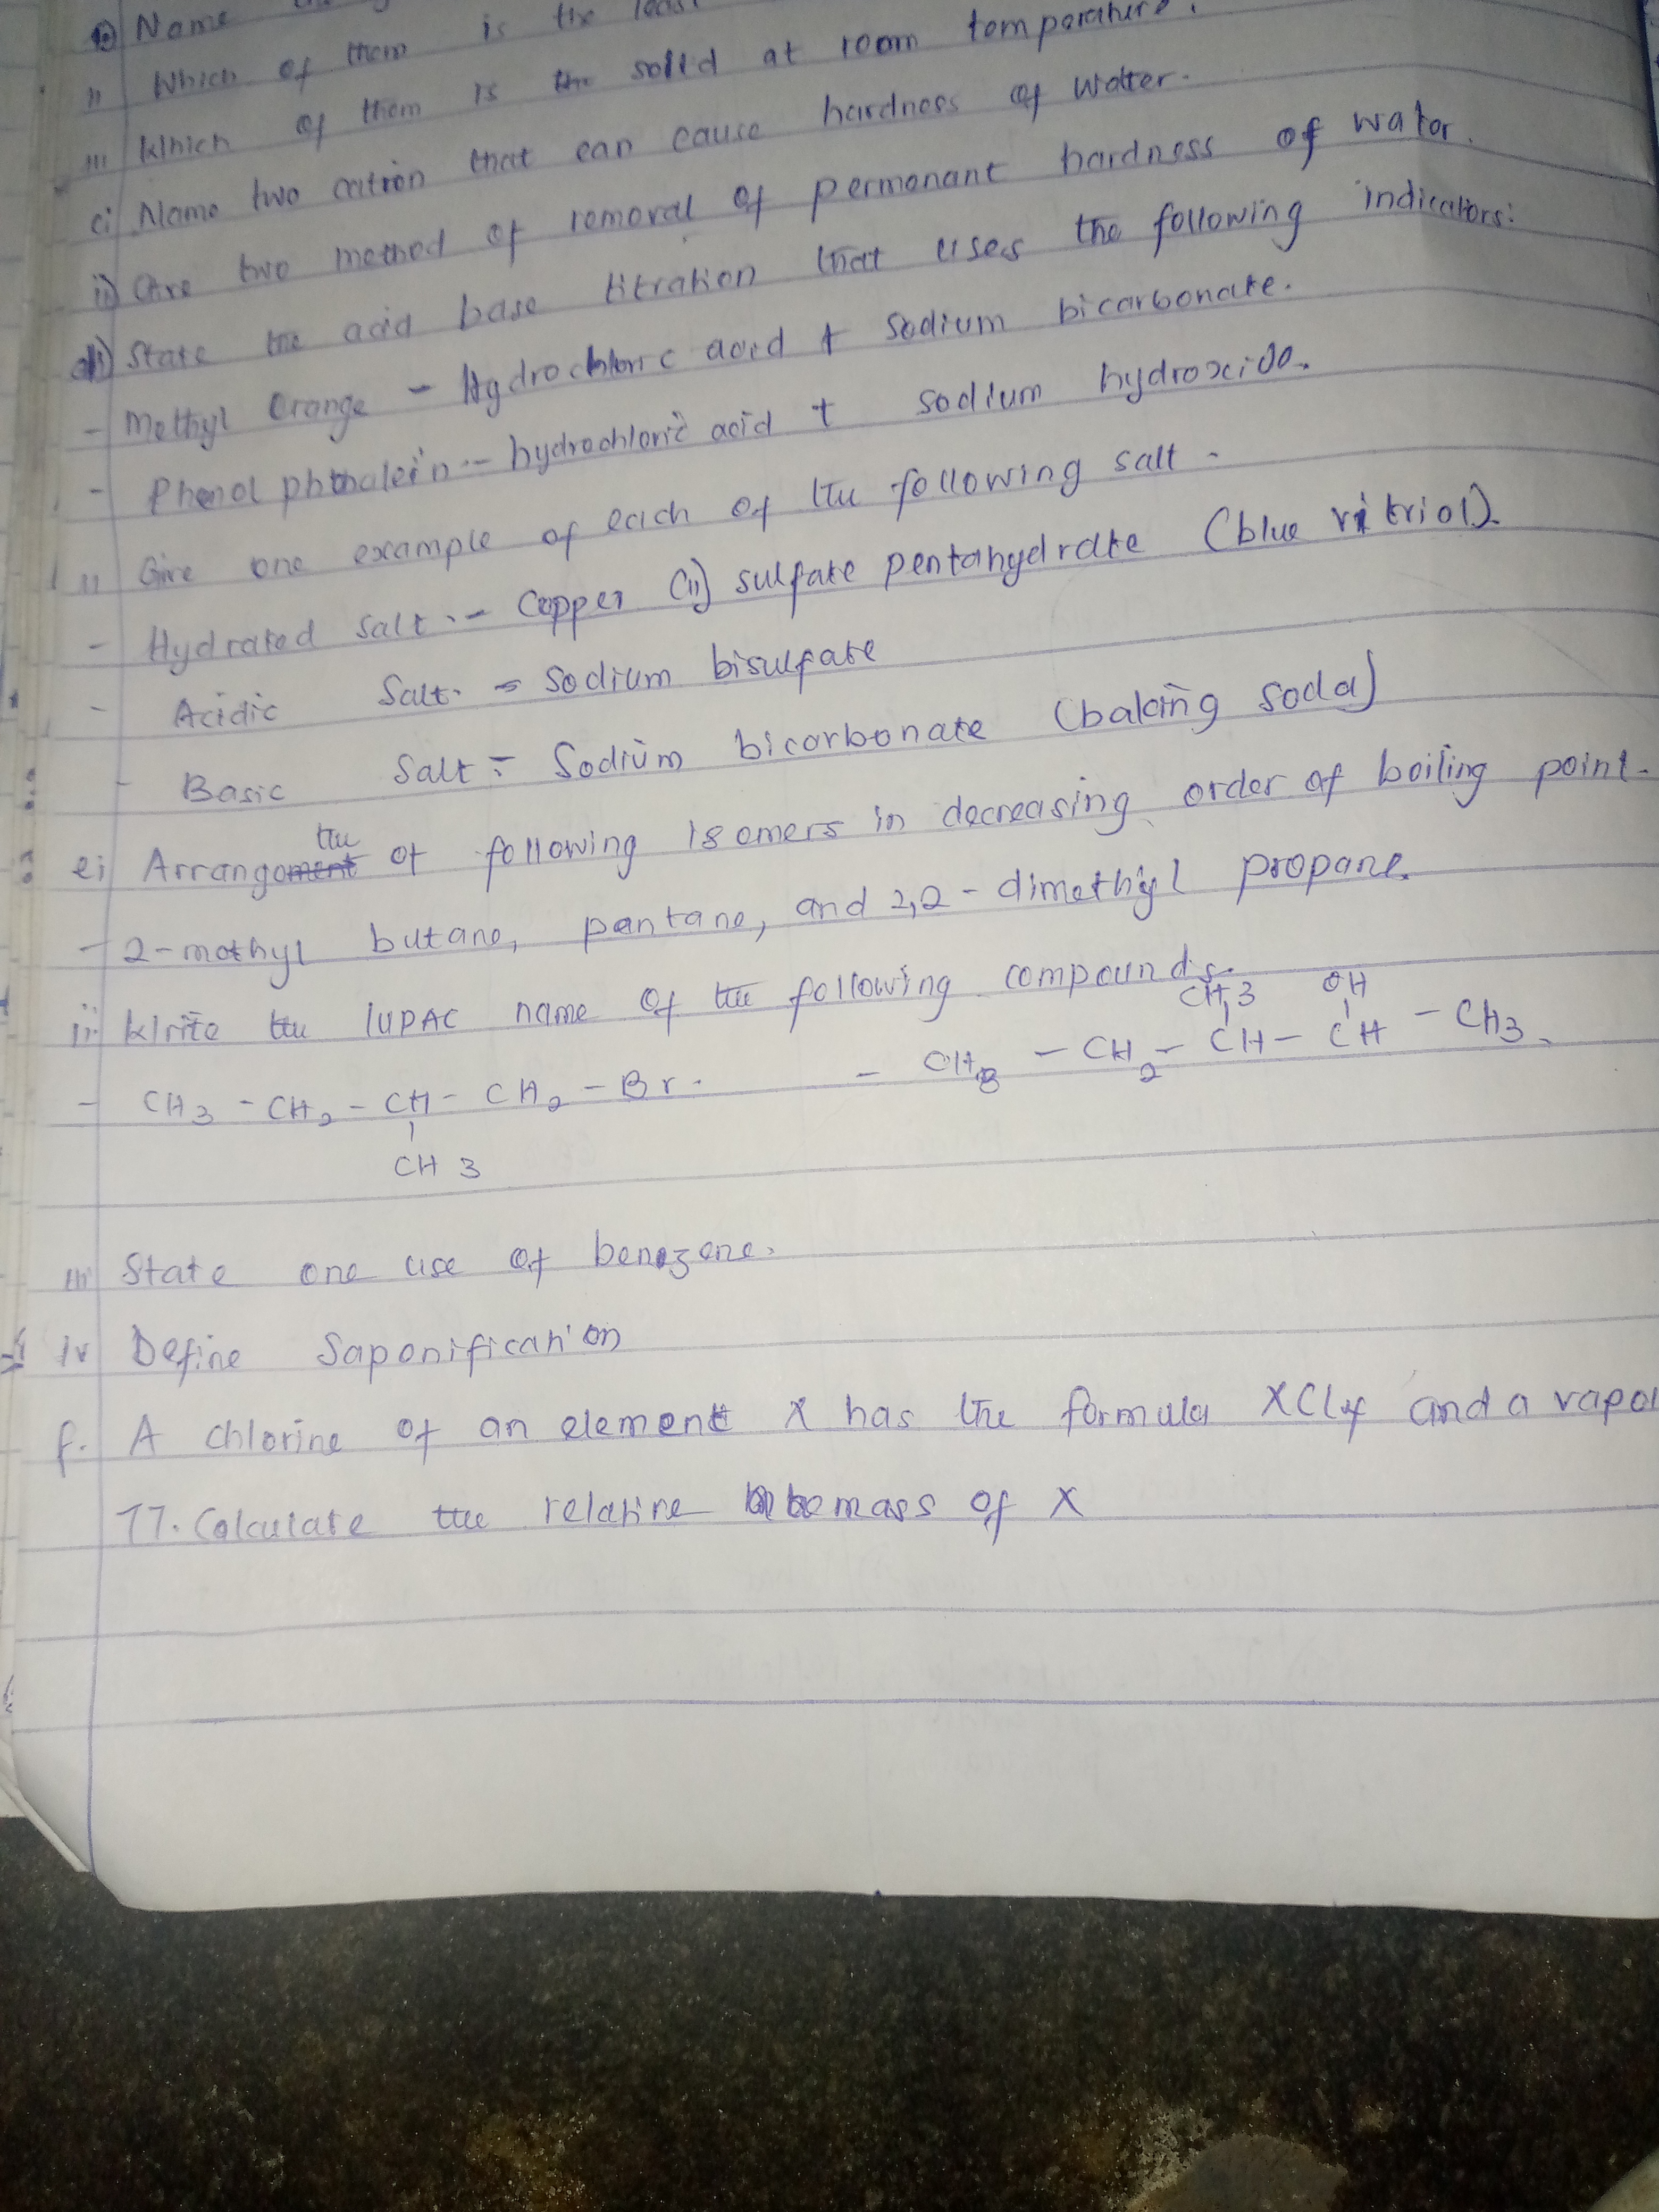 Name
ii Which of them is the least
iii Which of them is the solid at room temperature.
ci Name two cation that can cause hardness of water.
ii) Give two method of removal of permanant hardness of water.
di) State the acid base titration that uses the following indicators:
- Methyl Orange - Hydrochloric acid + Sodium bicarbonate.
- Phenol phthalein - hydrochloric acid + sodium hydroxide.
ii Give one example of each of the following salt -
- Hydrated salt - Copper (ii) sulfate pentahydrate (blue vitriol).
- Acidic Salt - Sodium bisulfate
- Basic Salt - Sodium bicarbonate (baking soda)
ei Arrange the of following isomers in decreasing order of boiling point.
- 2-methyl butane, pentane, and 2,2-dimethyl propane.
ii Write the IUPAC name of the following compounds.
CH3 OH
- CH3 - CH2 - CH - CH2 - Br. - CH3 - CH2 - CH - CH - CH3.
CH3
iii State one use of benzene.
iv Define Saponification
f. A chlorine of an element X has the formula XCl4 and a vapo
77. Calculate the relative mass of X